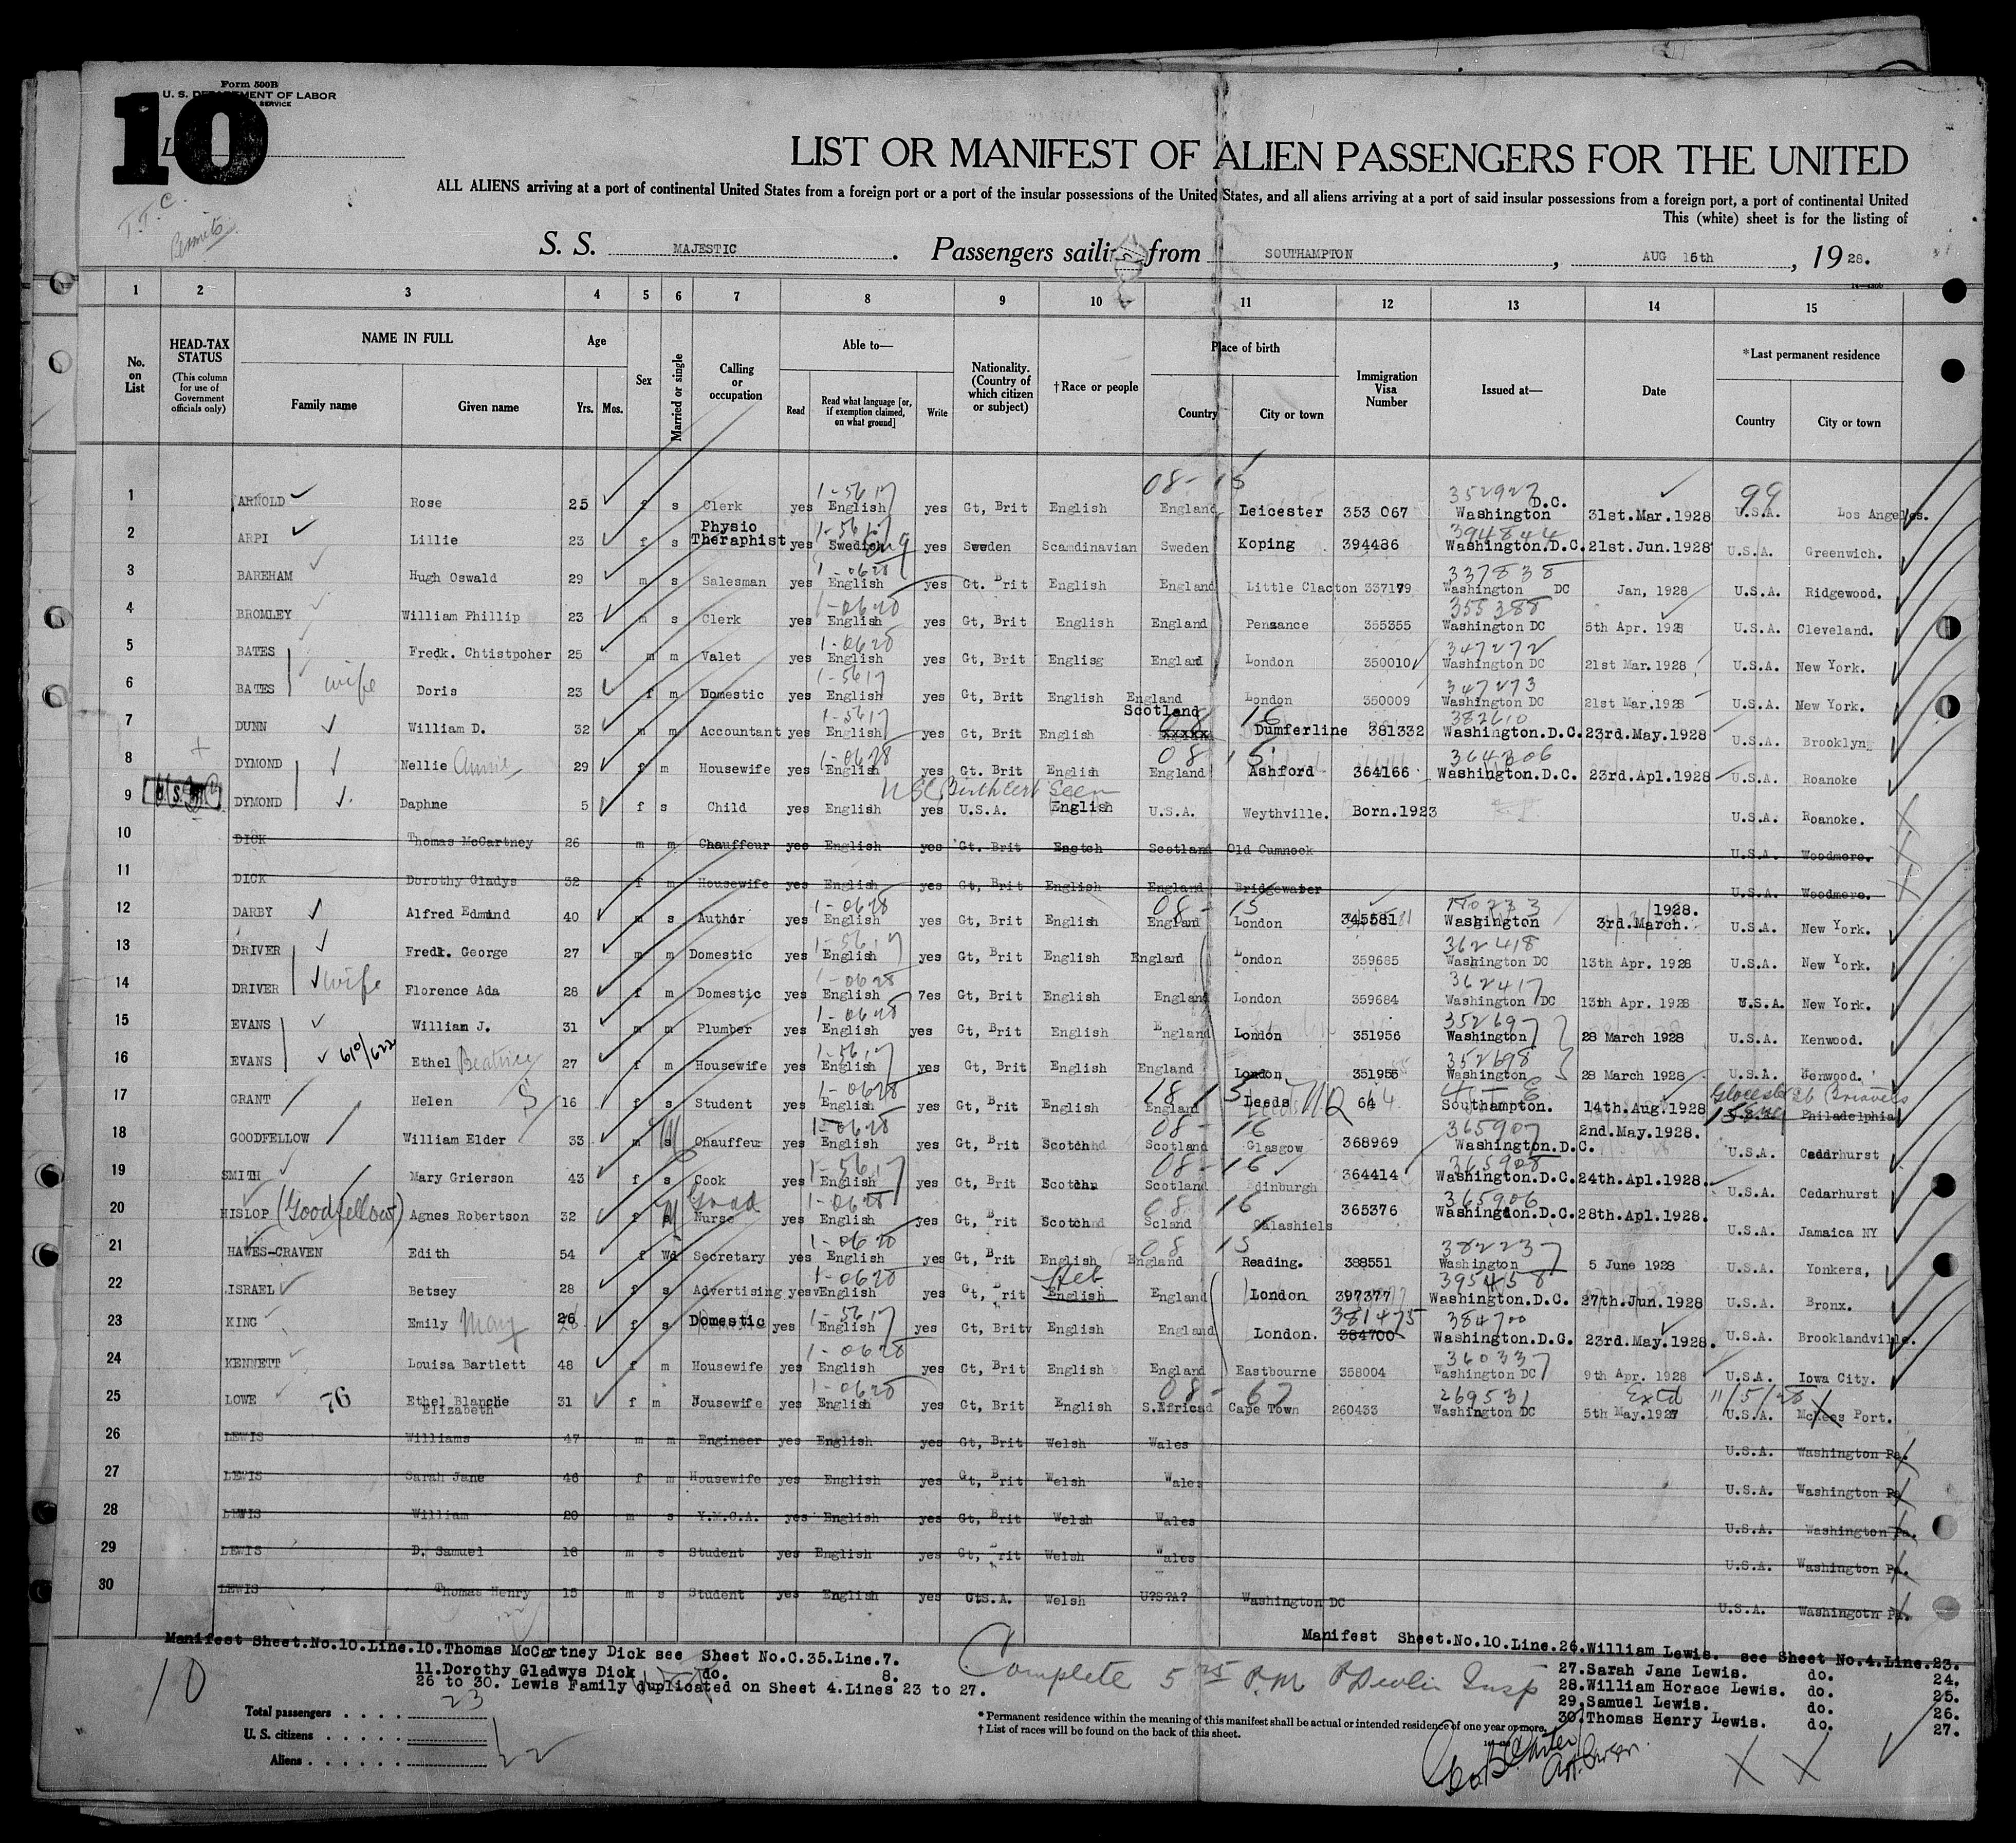 Form 500B
U. S. DEPARTMENT OF LABOR
SERVICE
10
T.T.C.
Permits
LIST OR MANIFEST OF ALIEN PASSENGERS FOR THE UNITED
ALL ALIENS arriving at a port of continental United States from a foreign port or a port of the insular possessions of the United States, and all aliens arriving at a port of said insular possessions from a foreign port, a port of continental United
This (white) sheet is for the listing of
S. S. MAJESTIC . Passengers sailing from SOUTHAMPTON , AUG 15th , 19 28.
1 2 3 4 5 6 7 8 9 10 11 12 13 14 15
No. on List HEAD-TAX STATUS (This column for use of Government officials only) NAME IN FULL Family name Given name Age Yrs. Mos. Sex Married or single Calling or occupation Able to— Read Read what language [or, if exemption claimed, on what ground] Write Nationality. (Country of which citizen or subject) †Race or people Place of birth Country City or town Immigration Visa Number Issued at— Date *Last permanent residence Country City or town
08-15 352927 99
1 ARNOLD Rose 25 f s Clerk yes 1-5617 English yes Gt, Brit English England Leicester 353 067 Washington D.C. 31st.Mar.1928 U.S.A. Los Angeles.
2 ARPI Lillie 23 f s Physio Theraphist yes 1-5617 Swedish Eng yes Sweden Scandinavian Sweden Koping 394486 394844 Washington.D.C. 21st.Jun.1928 U.S.A. Greenwich.
3 BAREHAM Hugh Oswald 29 m s Salesman yes 1-0628 English yes Gt. Brit English England Little Clacton 337179 337838 Washington DC Jan, 1928 U.S.A. Ridgewood.
4 BROMLEY William Phillip 23 m s Clerk yes 1-0628 English yes Gt, Brit English England Penzance 355355 355388 Washington DC 5th Apr. 1928 U.S.A. Cleveland.
5 BATES Fredk. Chtistpoher 25 m m Valet yes 1-0628 English yes Gt, Brit Englisg England London 350010 347272 Washington DC 21st Mar.1928 U.S.A. New York.
6 BATES wife Doris 23 f m Domestic yes 1-5617 English yes Gt, Brit English England London 350009 347273 Washington DC 21st Mar.1928 U.S.A. New York.
7 DUNN William D. 32 m m Accountant yes 1-5617 English yes Gt, Brit English Scotland xxxxx 08 16 Dumferline 381332 382610 Washington.D.C. 23rd.May.1928 U.S.A. Brooklyn
8 DYMOND Nellie Annie 29 f m Housewife yes 1-0628 English yes Gt. Brit English England 08 15 Ashford 364166 364306 Washington.D.C. 23rd.Apl.1928 U.S.A. Roanoke
USC Birth cert Seen
9 DYMOND Daphne 5 f s Child yes English yes U.S.A. English U.S.A. Weythville. Born.1923 U.S.A. Roanoke.
10 DICK Thomas McCartney 26 m m Chauffeur yes English yes Gt. Brit Scotland Old Cumnock U.S.A. Woodmere.
11 DICK Dorothy Gladys 32 f m Housewife yes English yes Gt, Brit English England Bridgewater U.S.A. Woodmere.
12 DARBY Alfred Edmund 40 m s Author yes 1-0628 English yes Gt, Brit English England 08-15 London 345581 Washington 3rd.March. 1928. U.S.A. New York.
13 DRIVER Fredk. George 27 m m Domestic yes 1-5617 English yes Gt, Brit English England London 359685 362418 Washington DC 13th Apr. 1928 U.S.A. New York.
14 DRIVER wife Florence Ada 28 f m Domestic yes 1-0628 English 7es Gt, Brit English England London 359684 362417 Washington DC 13th Apr. 1928 U.S.A. New York.
15 EVANS William J. 31 m m Plumber yes 1-0628 English yes Gt, Brit English England London 351956 352697 Washington 28 March 1928 U.S.A. Kenwood.
16 EVANS 610/622 Ethel Beatrice 27 f m Housewife yes 1-5617 English yes Gt, Brit English England London 351955 352698 Washington 28 March 1928 U.S.A. Kenwood.
17 GRANT Helen S 16 f s Student yes 1-0628 English yes Gt, Brit English England 18 15 Leeds NQ 64 Southampton. 14th.Aug.1928 Philadelphia
18 GOODFELLOW William Elder 33 m s M Chauffeur yes 1-0628 English yes Gt, Brit Scotch Scotland 08-16 Glasgow 368969 365907 Washington.D.C. 2nd.May.1928. U.S.A. Cedarhurst
19 SMITH Mary Grierson 43 f s Cook yes 1-5617 English yes Gt, Brit Scotch Scotland 08-16 Edinburgh 364414 365908 Washington.D.C. 24th.Apl.1928. U.S.A. Cedarhurst
20 HISLOP (Goodfellow) Agnes Robertson 32 f M Nurse yes 1-0628 English yes Gt, Brit Scotch Scland 08 16 Galashiels 365376 365906 Washingdon.D.C. 28th.Apl.1928. U.S.A. Jamaica NY
21 HAWES-CRAVEN Edith 54 f Wd Secretary yes 1-0628 English yes Gt, Brit English England 08 15 Reading. 388551 382237 Washington 5 June 1928 U.S.A. Yonkers,
22 ISRAEL Betsey 28 f s Advertising yes 1-0628 English yes Gt, Brit Heb English England London 397377 395458 Washington.D.C. 27th.Jun.1928 U.S.A. Bronx.
23 KING Emily May 26 f s Domestic yes 1-5617 English yes Gt, Brit English England London. 381475 384700 384700 Washington.D.C. 23rd.May.1928. U.S.A. Brooklandville.
24 KENNETT Louisa Bartlett 48 f m Housewife yes 1-0628 English yes Gt, Brit English England Eastbourne 358004 360337 Washington DC 9th Apr. 1928 U.S.A. Iowa City.
25 LOWE 76 Ethel Blanche Elizabeth 31 f m Housewife yes 1-0628 English yes Gt, Brit English S.Africa 08-67 Cape Town 260433 269531 Washington DC 5th May.1927 Extd 11/5/28 U.S.A. McKees Port.
26 LEWIS Williams 47 m m Engineer yes English yes Gt, Brit Welsh Wales U.S.A. Washington Pa.
27 LEWIS Sarah Jane 46 f m Housewife yes English yes Gt, Brit Welsh Wales U.S.A. Washington Pa.
28 LEWIS William 20 m s Y.M.C.A. yes English yes Gt, Brit Welsh Wales U.S.A. Washington Pa.
29 LEWIS D. Samuel 18 m s Student yes English yes Gt, Brit Welsh Wales U.S.A. Washington Pa.
30 LEWIS Thomas Henry 15 m s Student yes English yes GtS.A. Welsh U?S?A? Washington DC U.S.A. Washingotn Pa.
Manifest Sheet.No.10.Line.10.Thomas McCartney Dick see Sheet No.C.35.Line.7.
11.Dorothy Gladwys Dick do. 8.
26 to 30. Lewis Family duplicated on Sheet 4.Lines 23 to 27.
Manifest Sheet.No.10.Line.26.William Lewis. see Sheet No.4.Line.23.
27.Sarah Jane Lewis. do. 24.
28.William Horace Lewis. do. 25.
29.Samuel Lewis. do. 26.
30.Thomas Henry Lewis. do. 27.
10
Complete 5 25 P.M P Devlin Insp
Total passengers . . . . 23
U. S. citizens . . . . .
Aliens . . . . . . 22
* Permanent residence within the meaning of this manifest shall be actual or intended residence of one year or more.
† List of races will be found on the back of this sheet.